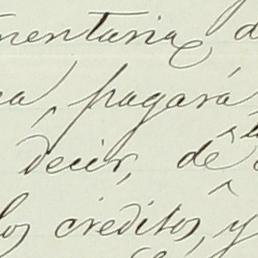 mentaria d
ca, pagará
decir, de
los creditos, y